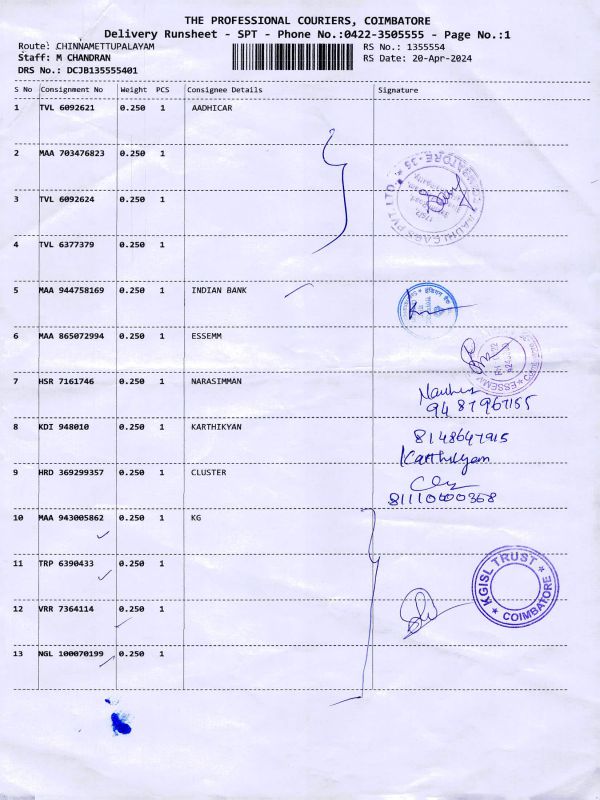 THE PROFESSIONAL COURIERS, COIMBATORE
Delivery Runsheet - SPT - Phone No.:0422-3505555 - Page No.:1
Route: CHINNAMETTUPALAYAM RS No.: 1355554
Staff: M CHANDRAN RS Date: 20-Apr-2024
DRS No.: DCJB135555401
S No Consignment No Weight PCS Consignee Details Signature
1 TVL 6092621 0.250 1 AADHICAR
2 MAA 703476823 0.250 1
3 TVL 6092624 0.250 1
4 TVL 6377379 0.250 1
5 MAA 944758169 0.250 1 INDIAN BANK
6 MAA 865072994 0.250 1 ESSEMM
7 HSR 7161746 0.250 1 NARASIMMAN
94 87967155
8 KDI 948010 0.250 1 KARTHIKYAN 8148647915
Karthikyan
9 HRD 369299357 0.250 1 CLUSTER
81110400368
10 MAA 943005862 0.250 1 KG
11 TRP 6390433 0.250 1
KGISL TRUST
COIMBATORE
12 VRR 7364114 0.250 1
13 NGL 100070199 0.250 1